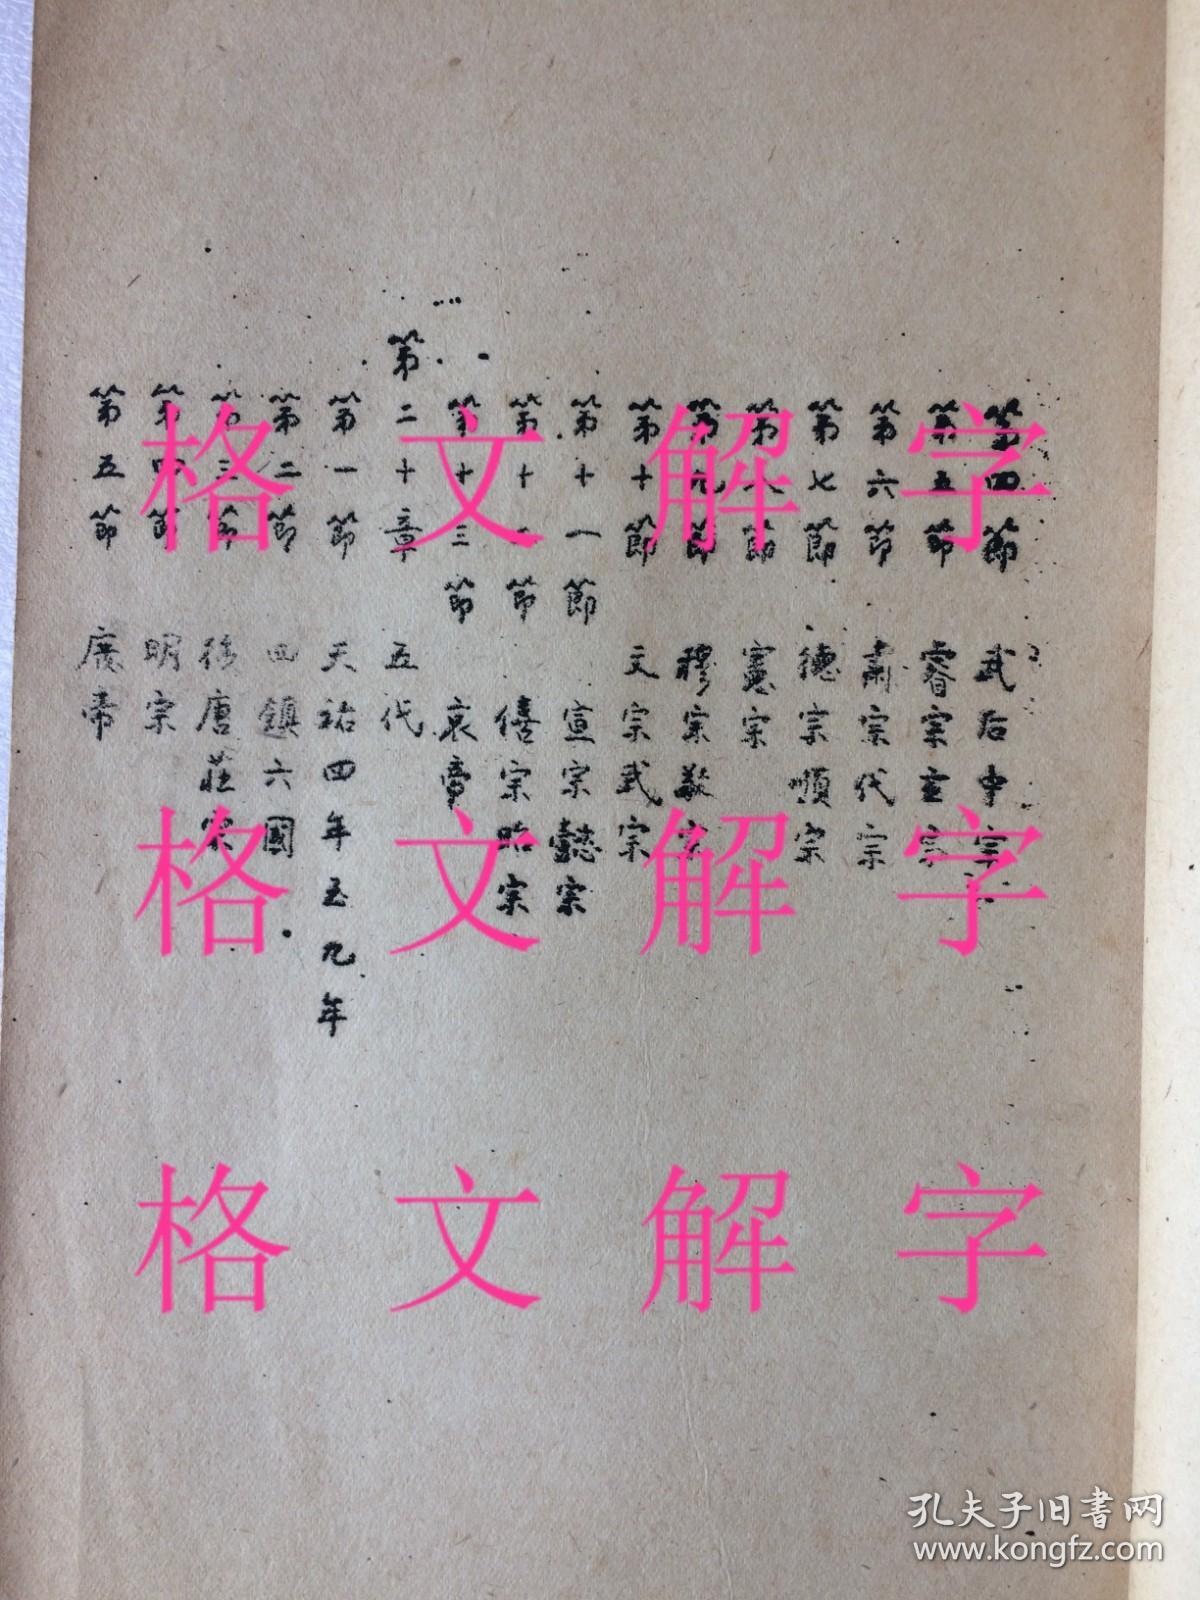 第四節 武后中宗
第五節 睿宗玄宗
第六節 肅宗代宗
第七節 德宗順宗
第八節 憲宗
第九節 穆宗敬宗
第十節 文宗武宗
第十一節 宣宗懿宗
第十二節 僖宗昭宗
第十三節 哀帝
第二十章 五代
第一節 天祐四年至九年
第二節 四鎮六國
第三節 後唐莊宗
第四節 明宗
第五節 廢帝
格文解字
格文解字
格文解字
孔夫子旧書网
www.kongfz.com